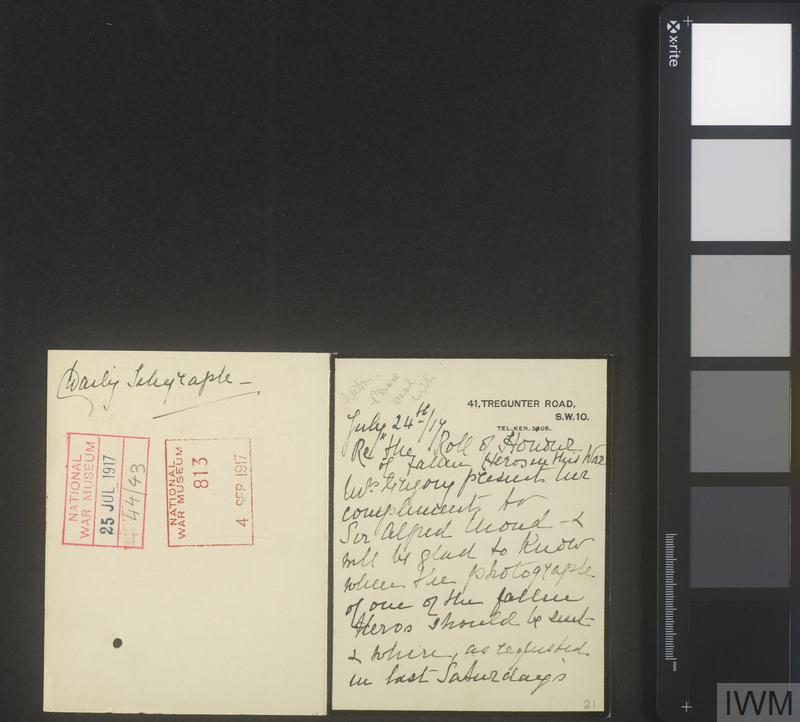 Daily Telegraph —
NATIONAL
WAR MUSEUM
25 JUL 1917
44/43
NATIONAL
WAR MUSEUM
813
4 SEP 1917
Please
41, TREGUNTER ROAD,
S.W.10.
TEL. KEN. 2406.
July 24th/17
Re "the Roll of Honour
of fallen Heros in this War
Mrs Gregory presents her
compliments to
Sir Alfred Mond - &
will be glad to know
when the photograph
of one of the fallen
Heros should be sent
& where, as requested
in last Saturday's
21
x-rite
mm
IWM